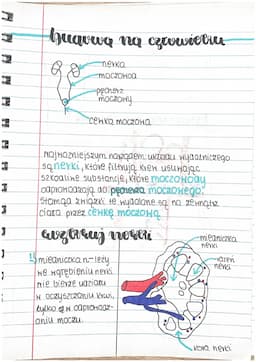 Budowa na człowieku
nerka
moczowód
pęcherz
moczowy
cewka moczowa
najważniejszym narządem układu wydalniczego
są nerki, które filtrują krew usuwając
szkodliwe substancje, które moczowody
odprowadzają do pęcherza moczowego.
Stamtąd związki te wydalane są na zewnątrz
ciała przez cewkę moczową.
nerki
miedniczka
nerki
rdzeń
nerki
1) miedniczka n- leży
we wgłębieniu nerki.
nie bierze udziału
w oczyszczaniu krwi,
tylko w odprowadz-
aniu moczu.
kora nerki